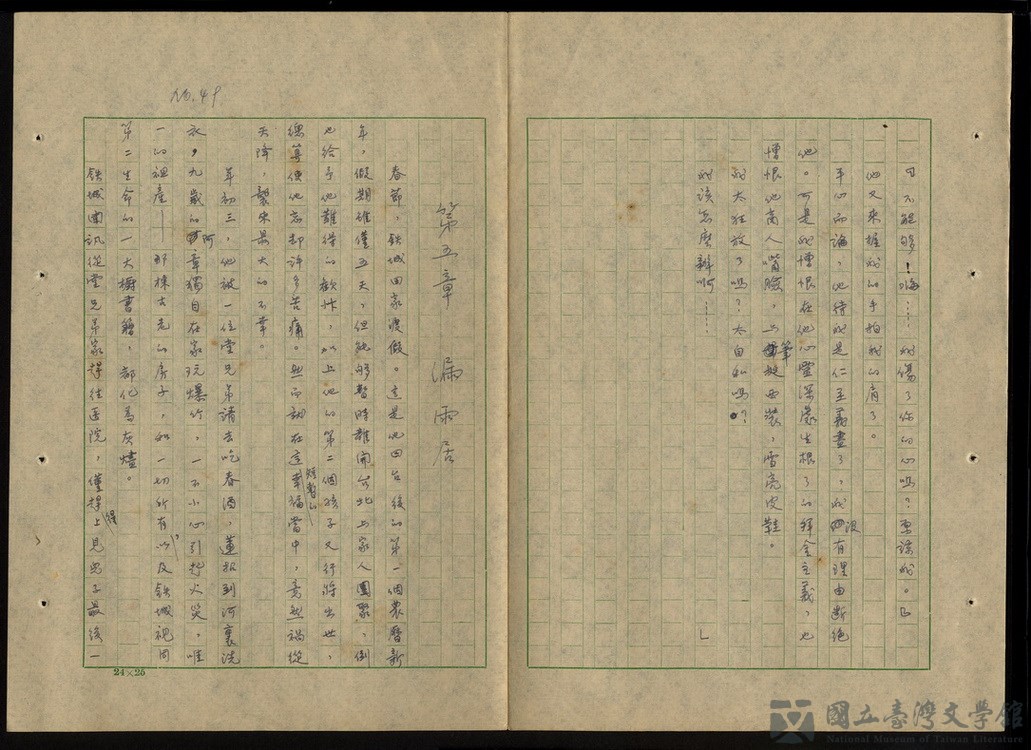 『不能够！嗨……我傷了你的心嗎？要諒我。』
他又來握我的手拍我的肩了。
平心而論，他待我是仁至義盡了，我沒有理由斷絕
他。可是我憎恨在他心靈深處生根了的拜金主義，也
憎恨他高人嘴臉，與筆挺西裝，雪亮皮鞋。
我太狂放了嗎？太自私嗎？
我該怎麼辦啊……」
No. 49
第五章 漏雨居
春節，鉄城回家渡假。這是他回台後的第一個農曆新
年，假期雖僅五天，但能够暫時離開台北与家人團聚，倒
也給予他難得的歡忭，加上他的第二個孩子又行將出世，
總算使他忘却許多苦痛。然而就在這短暫的幸福當中，竟然禍從
天降，襲來最大的不幸。
年初三，他被一位堂兄弟請去吃春酒，蓮招到河裏洗
衣，九歲的阿章獨自在家玩爆竹，一不小心引起火災，唯
一的祖產——那棟古老的房子，和一切所有，以及鉄城視同
第二生命的一大櫥書籍，都化爲灰燼。
鉄城聞訊從堂兄弟家趕往医院，僅趕得上見兒子最後一
24×25
國立臺灣文學館
National Museum of Taiwan Literature